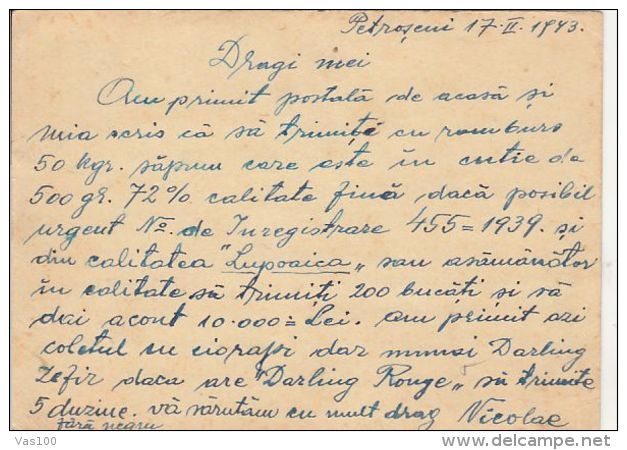 Petroșeni 17·II·1943.
Dragi mei
Am primit postală de acasă și
mia scris că să trimiță cu ramburs
50 kgr. săpun care este în cutie de
500 gr. 72% calitate fină dacă posibil
urgent No. de Inregistrare 455=1939. și
din calitatea "Lupoaica„ sau asămănător
în calitate să trimiți 200 bucăți și să
dai acont 10.000= Lei. am primit azi
coletul cu ciorapi dar numai Darling
Zefir daca are "Darling Rouge„ să trimite
5 duzine. vă sărutăm cu mult drag Nicolae
fără negru
Vas100
delcampe.net